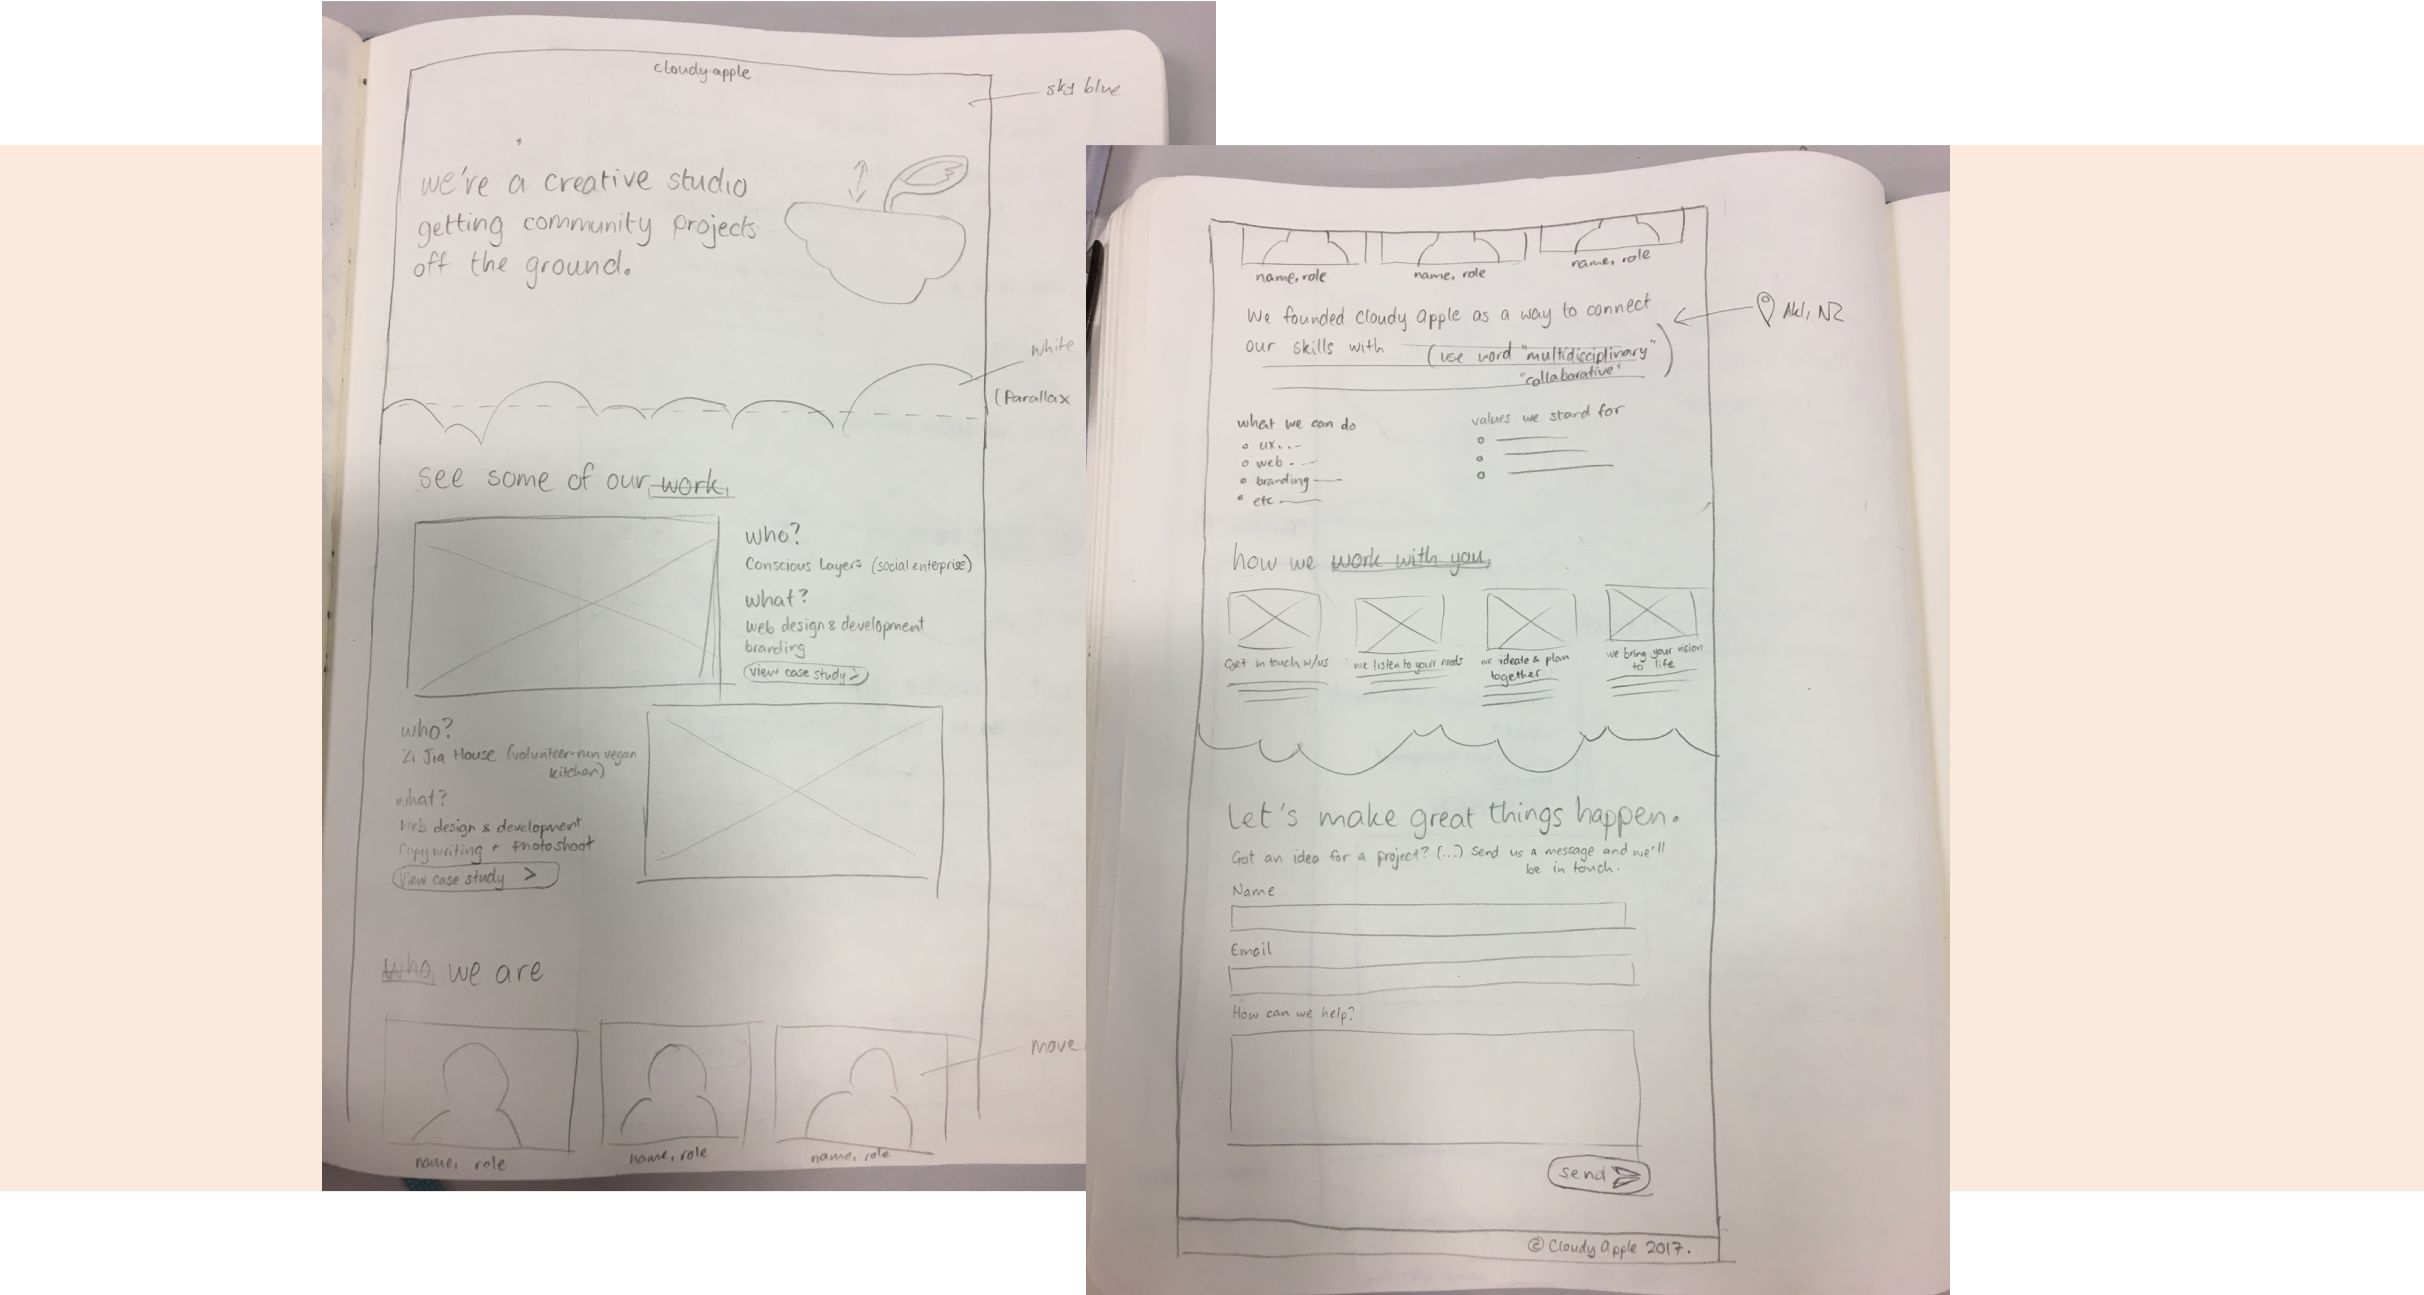 cloudy apple
sky blue
we're a creative studio
getting community projects
off the ground.
white
(Parallax
see some of our work.
who?
Conscious Layers (social enterprise)
what?
Web design & development
branding
View case study >
who?
Zi Jia House (volunteer-run vegan
kitchen)
what?
Web design & development
Copywriting + Photoshoot
View case study >
who we are
move
name, role
name, role
name, role
name, role
name, role
name, role
We founded cloudy apple as a way to connect
Akl, NZ
our skills with (use word "multidisciplinary"
"collaborative")
what we can do
ux...
web
branding
etc
values we stand for
how we work with you
Get in touch w/us
we listen to your needs
we ideate & plan
together
we bring your vision
to life
Let's make great things happen.
Got an idea for a project? (...) Send us a message and we'll
be in touch.
Name
Email
How can we help?
send
© Cloudy apple 2017.